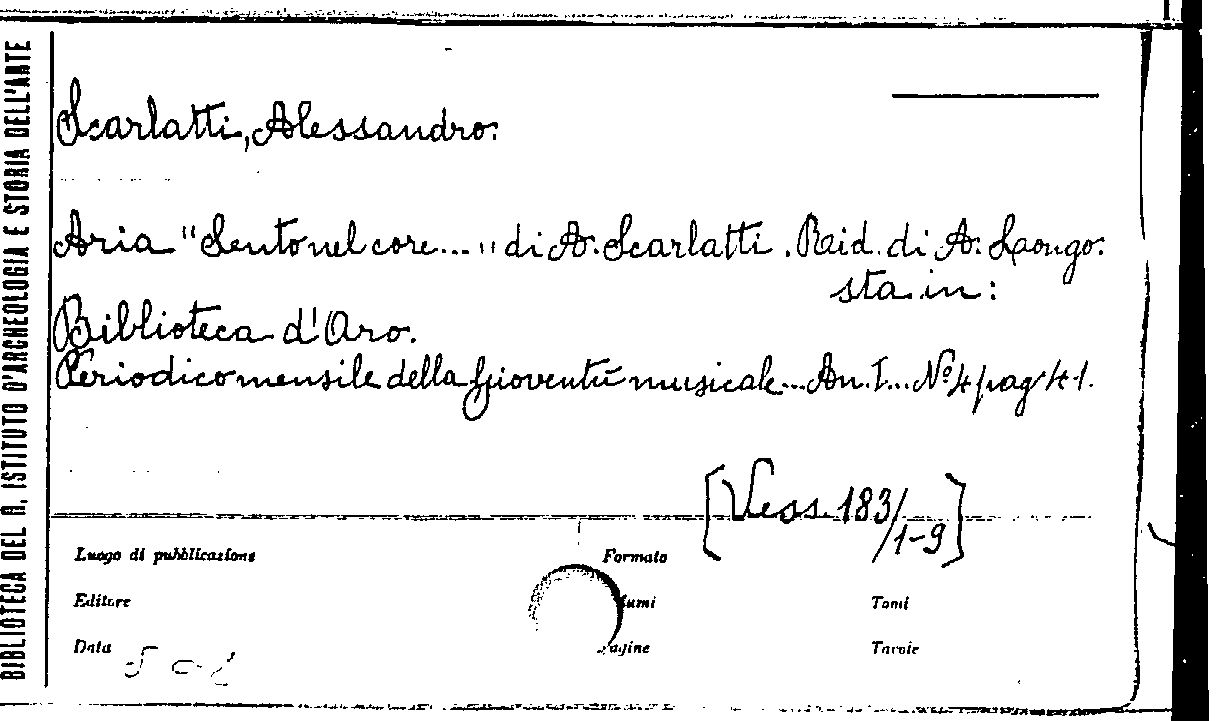 BIBLIOTECA DEL R. ISTITUTO D'ARCHEOLOGIA E STORIA DELL'ARTE
Scarlatti, Alessandro.
Aria "Sento nel core...." di A. Scarlatti. Raid. di A. Longo.
sta in:
Biblioteca d'Oro.
Periodico mensile della gioventù musicale... An. I... Nº 4 pag. 41.
[Vess. 183/1-9]
Luogo di pubblicazione
Formato
Editore
Tomi
Data
Pagine
Tavole